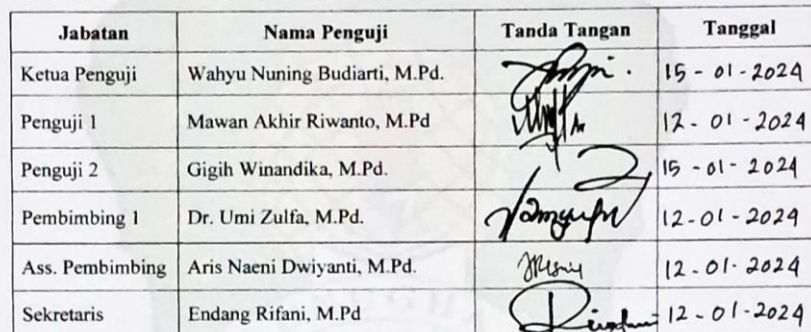 Jabatan Nama Penguji Tanda Tangan Tanggal
Ketua Penguji Wahyu Nuning Budiarti, M.Pd. 15 - 01 - 2024
Penguji 1 Mawan Akhir Riwanto, M.Pd 12 - 01 - 2024
Penguji 2 Gigih Winandika, M.Pd. 15 - 01 - 2024
Pembimbing 1 Dr. Umi Zulfa, M.Pd. 12 - 01 - 2024
Ass. Pembimbing Aris Naeni Dwiyanti, M.Pd. 12 - 01 - 2024
Sekretaris Endang Rifani, M.Pd 12 - 01 - 2024